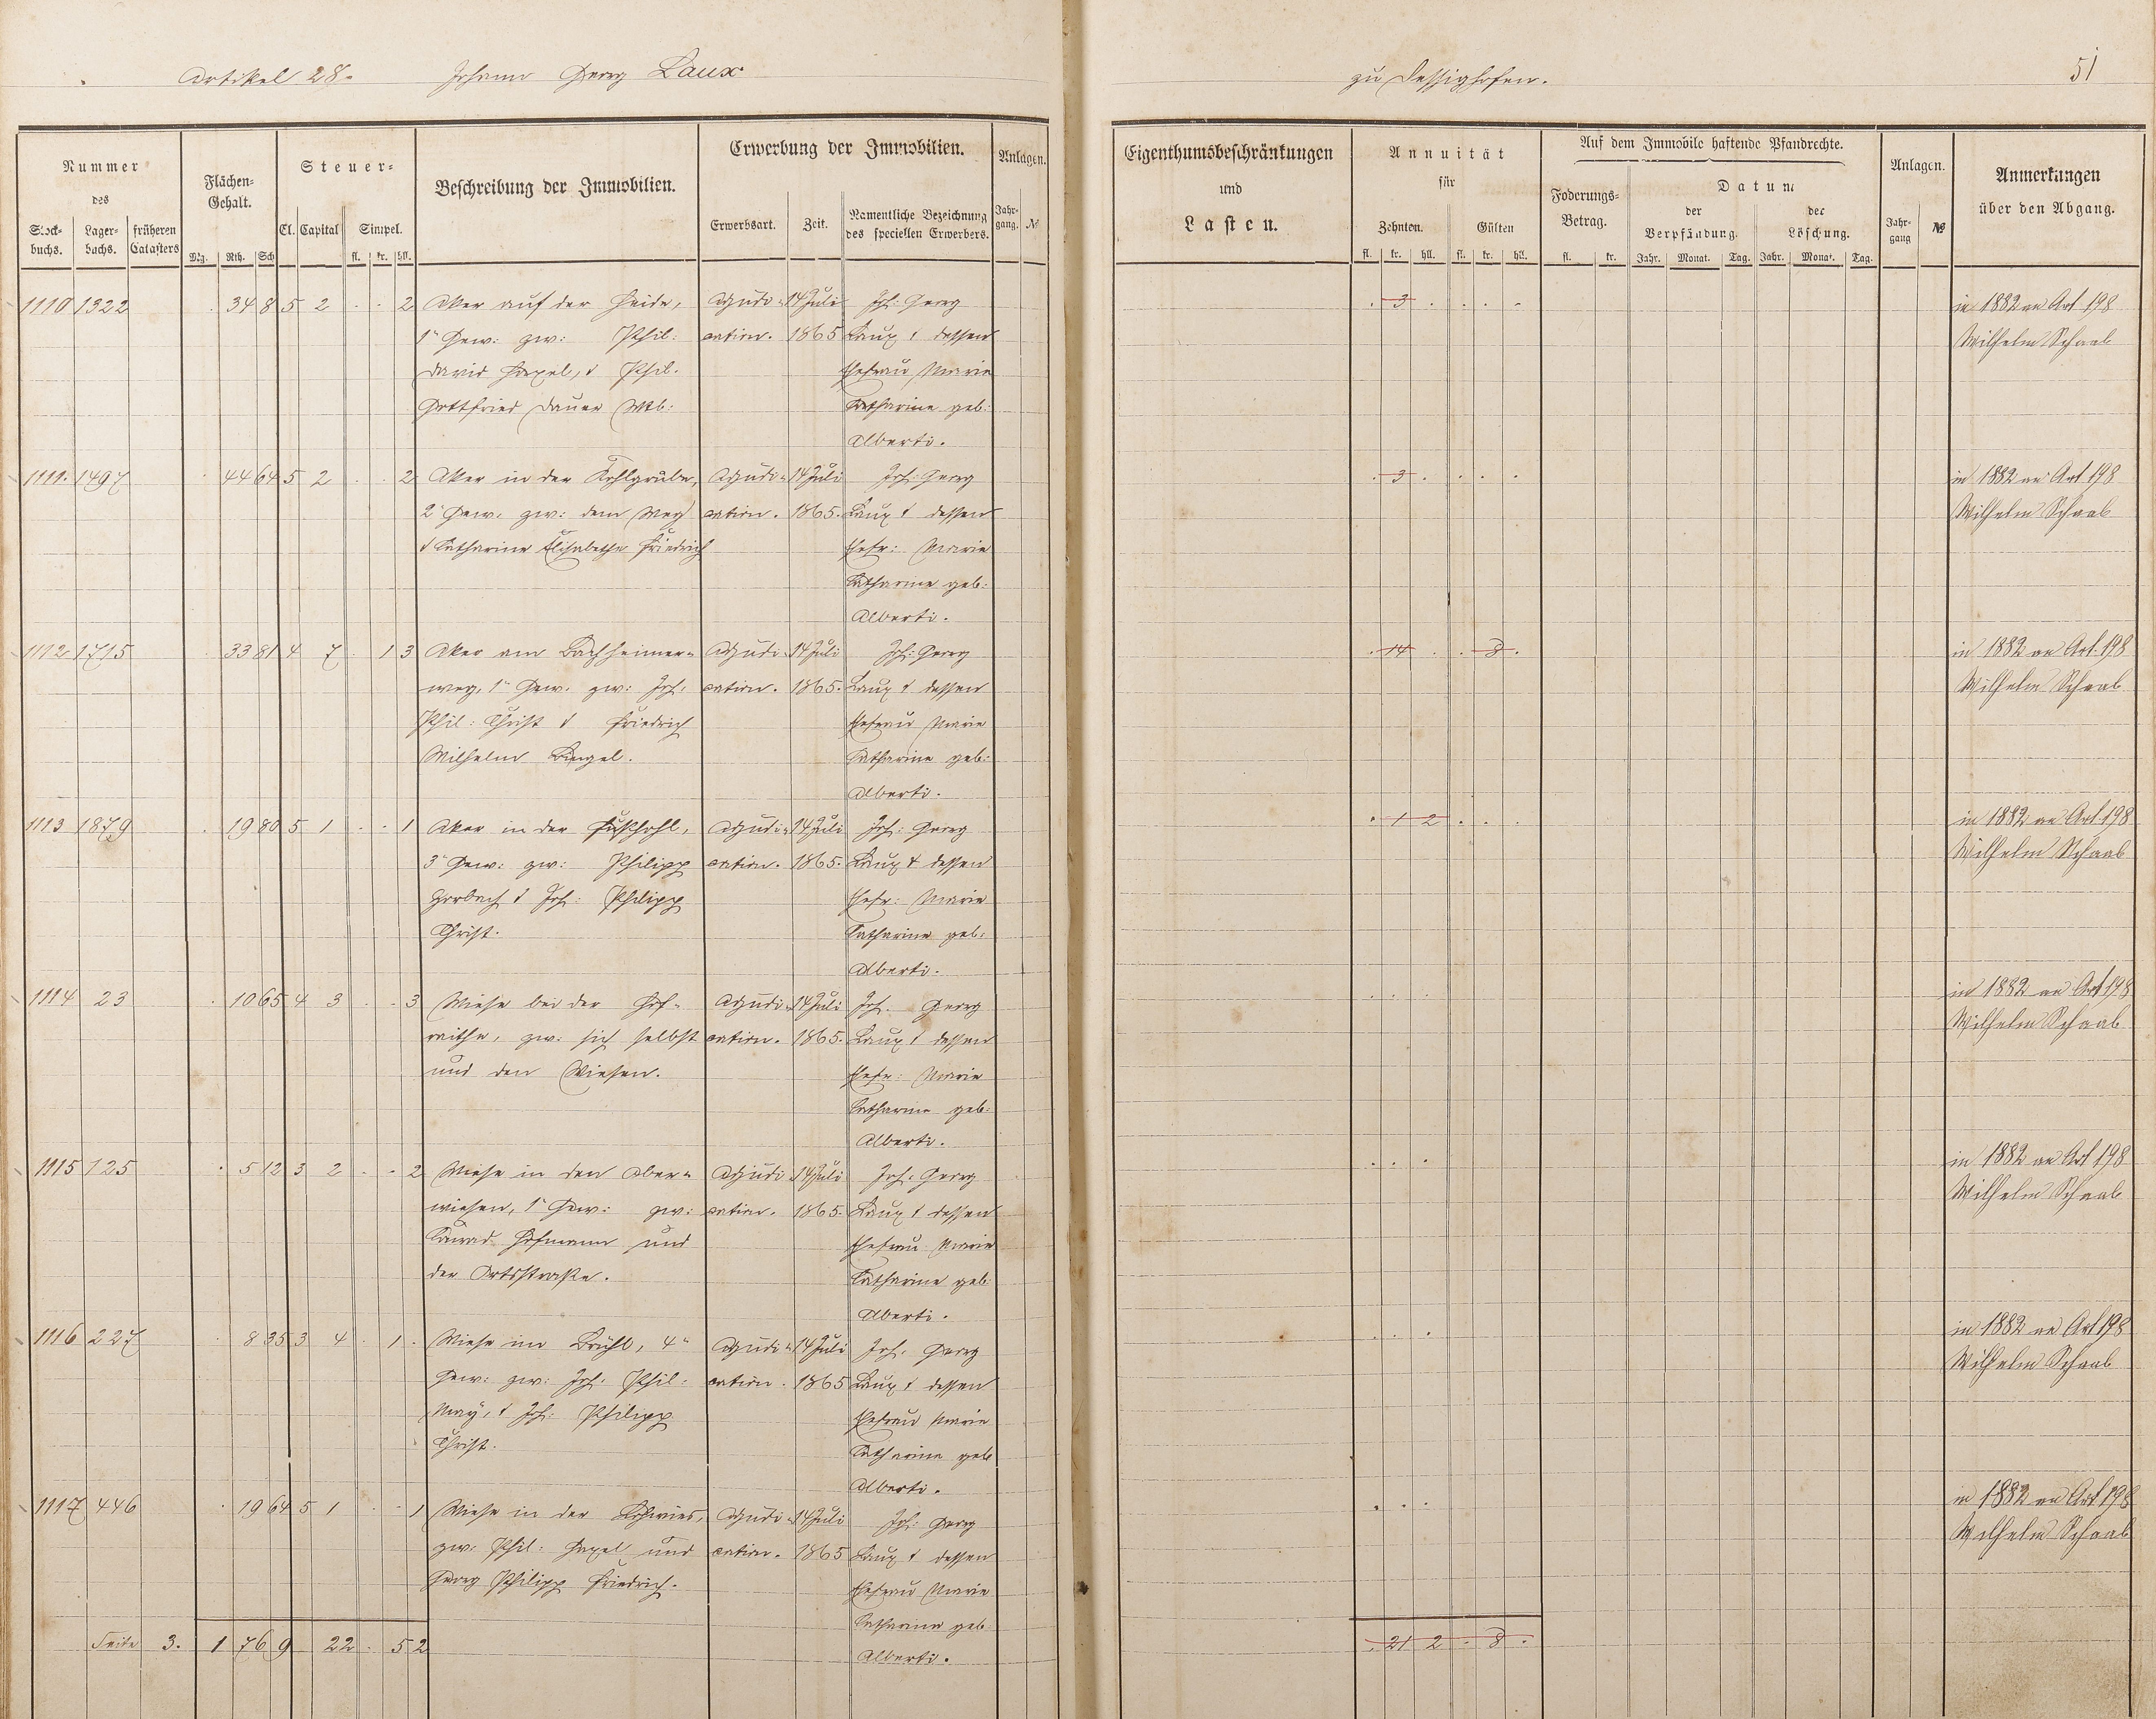 Artikel 28. Johann Georg Laux
zu Dessighofen. 51
Nummer
des
Stock-
buchs.
Lager-
buchs.
früheren
Catasters
Flächen-
Gehalt.
Mg. Rth. Sch.
Steuer-
Cl. Capital Simpel.
fl. kr. hll.
Beschreibung der Immobilien.
Erwerbung der Immobilien.
Erwerbsart. Zeit.
Namentliche Bezeichnung
des speciellen Erwerbers.
Anlagen.
Jahr-
gang. №
Eigenthumsbeschränkungen
und
Lasten.
Annuität
für
Zehnten. Gülten
fl. kr. hll. fl. kr. hll.
Auf dem Immobile haftende Pfandrechte.
Foderungs-
Betrag.
fl. kr.
Datum
der
Verpfändung.
der
Löschung.
Jahr. Monat. Tag. Jahr. Monat. Tag.
Anlagen.
Jahr-
gang №
Anmerkungen
über den Abgang.
1110 1322 . 34 8 5 2 . . 2 Aker auf der Heide, Adjudi- 14 Juli Joh: Georg . 3 . . . . in 1882 an Art 198
1" Gew: zw: Phil: cation. 1865 Laux & dessen Wilhelm Schaab
David Hepel, & Phil. Ehefrau Marie
Gottfried Dauer Wb: Katharine geb:
Alberti.
1111. 1497 . 44 64 5 2 . . 2 Aker in der Kohlgrube, Adjudi- 14 Juli Joh: Georg . 3 . . . . in 1882 an Art 198
2" Gew. zw: dem Weg cation. 1865. Laux & dessen Wilhelm Schaab
& Katharine Elisabethe Friedrich Ehefr: Marie
Katharine geb:
Alberti.
1112 1715 . 33 81 4 7 . 1 3 Aker am Bachheimer- Adjudi- 14 Juli Joh: Georg . 14 . . 8 . in 1882 an Art. 198
weg, 1" Gew. zw: Joh. cation. 1865. Laux & dessen Wilhelm Schaab
Phil: Christ & Friedrich Ehefrau Marie
Wilhelm Bingel. Katharine geb:
Alberti.
1113 1879 . 19 80 5 1 . . 1 Aker in der Fußhohl, Adjudi- 14 Juli Joh: Georg . 1 2 . . . in 1882 an Art 198
3" Gew: zw: Philipp cation. 1865. Laux & dessen Wilhelm Schaab
Gorbach & Joh: Philipp Ehefr: Marie
Christ. Katharine geb:
Alberti.
1114 23 . 10 65 4 3 . . 3 Wiese bei der Hof- Adjudi- 14 Juli Joh. Georg . . . in 1882 an Art 198
raithe, zw: sich selbst cation. 1865. Laux & dessen Wilhelm Schaab
und den Wiesen. Ehefr: Marie
Katharine geb:
Alberti.
1115 125 . 5 12 3 2 . . 2 Wiese in den Ober- Adjudi- 14 Juli Joh: Georg . . . in 1882 an Art 198
wiesen, 1" Gew: zw: cation. 1865. Laux & dessen Wilhelm Schaab
Konrad Hofmann und Ehefrau Marie
der Ortsstraße. Katharine geb.
Alberti.
1116 227 . 8 35 3 4 . 1 . Wiese im Brühl, 4" Adjudi- 14 Juli Joh. Georg . . . in 1882 an Art 198
Gew: zw: Joh. Phil- cation. 1865 Laux & dessen Wilhelm Schaab
May, & Joh: Philipp Ehefrau Marie
Christ. Katharine geb
Alberti.
1117 446 . 19 64 5 1 . . 1 Wiese in der Lohwies, Adjudi- 14 Juli Joh: Georg . . . in 1882 an Art 198
zw: Phil: Hepel und cation. 1865 Laux & dessen Wilhelm Schaab
Georg Philipp Friedrich. Ehefrau Marie
Katharine geb
Seite 3. 1 76 9 22 . 5 2 Alberti. . 21 2 . 8 .